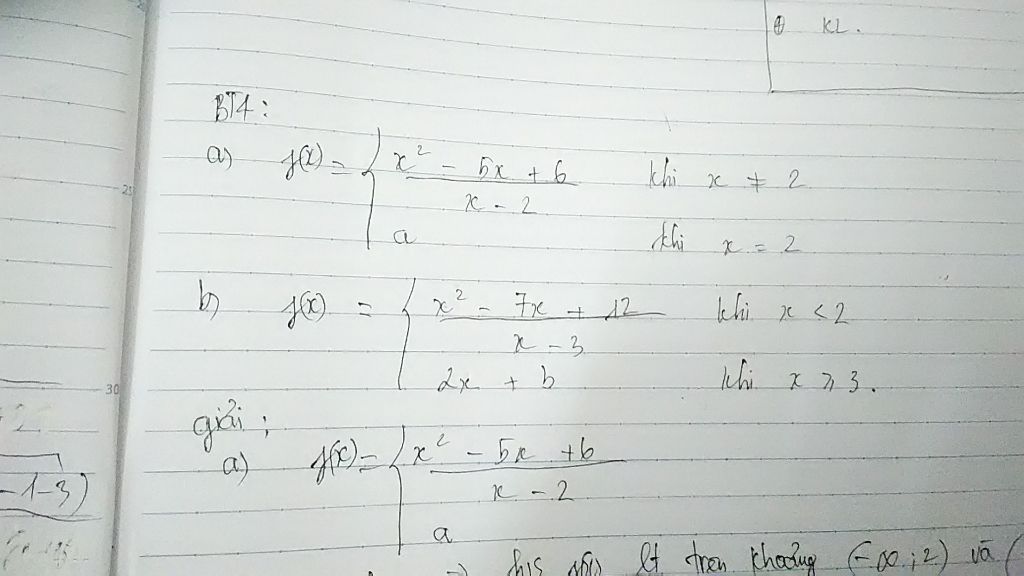 ⊕ KL.
BT4:
a) f(x) = { x² - 5x + 6 khi x ≠ 2
x - 2
a khi x = 2
b) f(x) = { x² - 7x + 12 khi x < 2
x - 3
2x + b khi x ≥ 3.
giải:
a) f(x) = { x² - 5x + 6
x - 2
-1-3)
a
lt trên khoảng (-∞; 2) và (
25
30